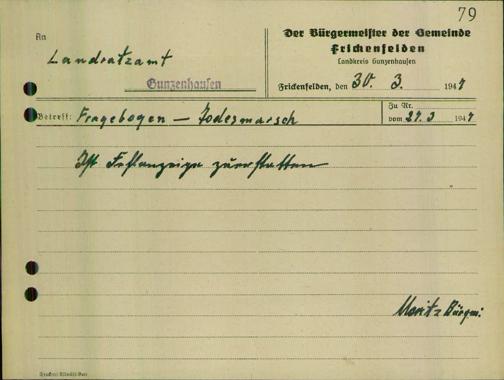 79
An
Landratzamt
Gunzenhausen
Der Bürgermeister der Gemeinde
Frickenfelden
Landkreis Gunzenhausen
Frickenfelden, den 30. 3. 1947
Betreff: Fragebogen — Todesmarsch
Zu Nr.
vom 27.3 1947
Ist Fehlanzeige zuerstatten
Moritz Bürgm: